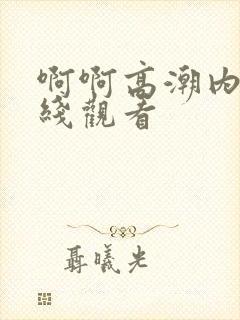 啊啊高潮内
綫觀看
聶曦光